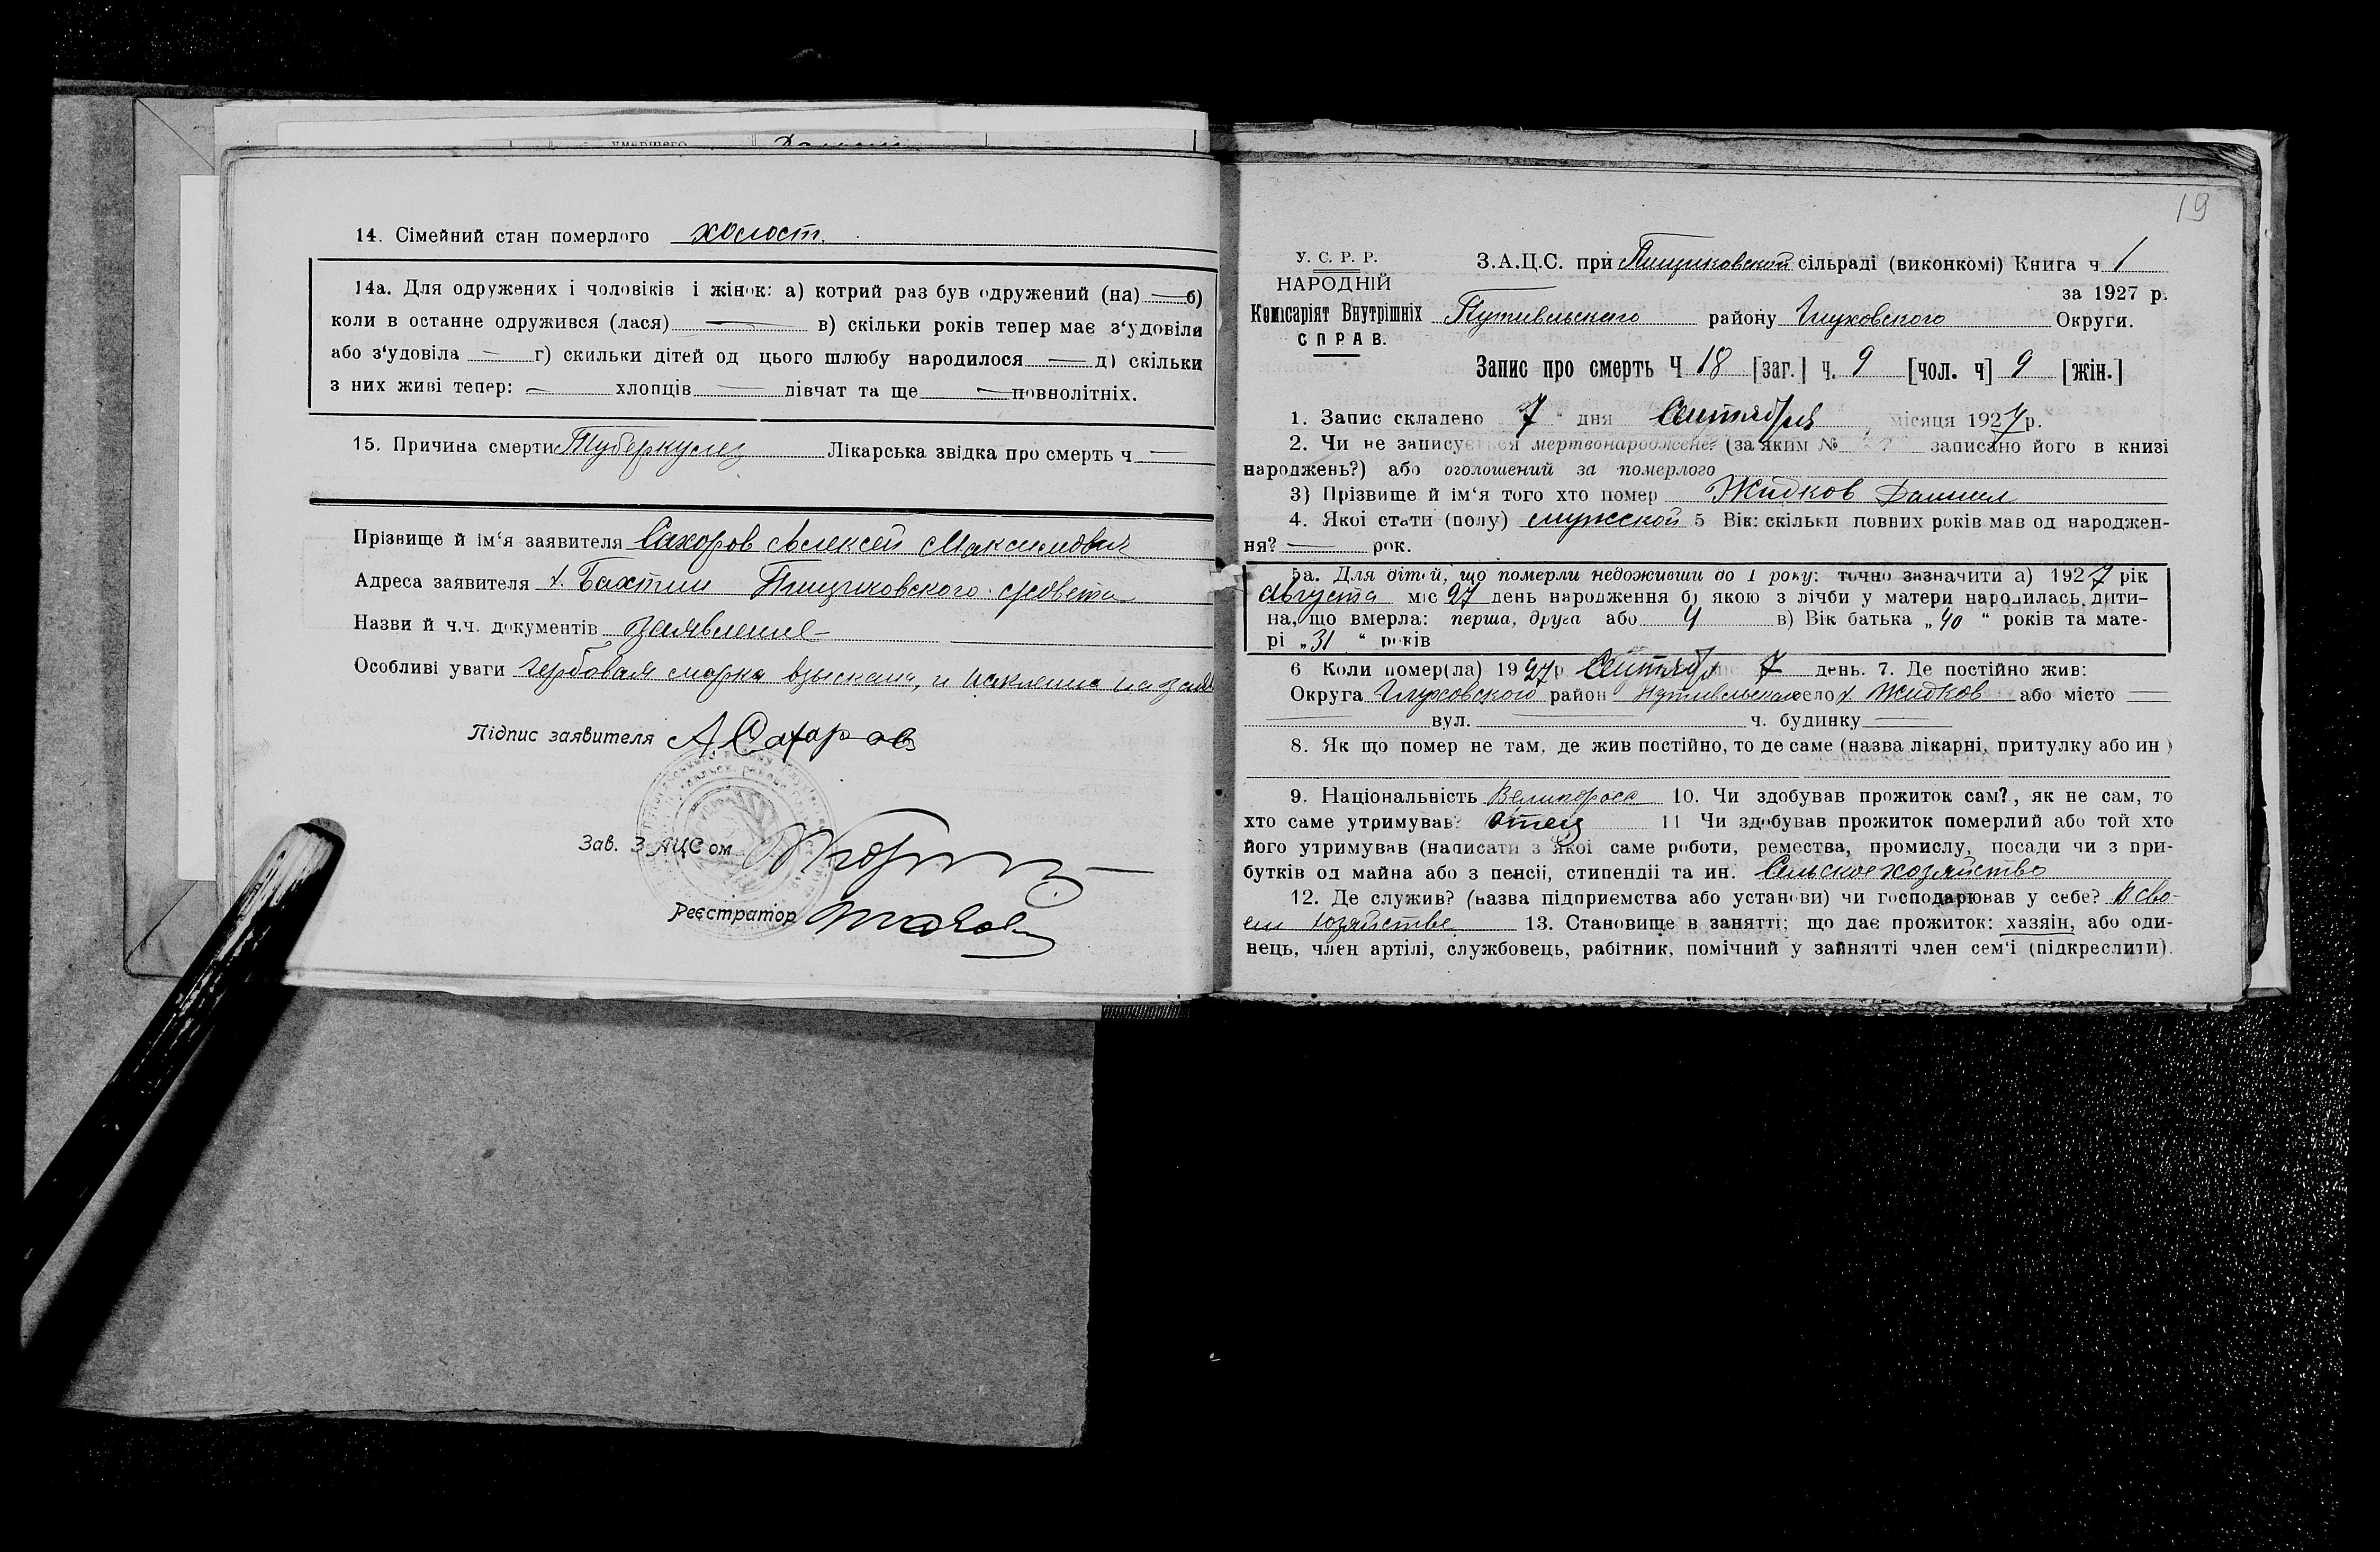 умершего
14. Сімейний стан померлого холост.
14а. Для одружених і чоловіків і жінок: а) котрий раз був одружений (на) — б)
коли в останне одружився (лася) — в) скільки років тепер має з‘удовіли
або з‘удовіла — г) скильки дітей од цього шлюбу народилося — д) скільки
з них живі тепер: — хлопців — дівчат та ще — повнолітніх.
15. Причина смерти Туберкулез Лікарська звідка про смерть ч —
Прізвище й ім‘я заявителя Сахоров Алексей Максимович
Адреса заявителя х. Бахтин Пищиковского с/совета
Назви й ч.ч. документів заявление
Особливі уваги гербовая марка взыскана, и наклеена на заяв
Підпис заявителя А. Сахаров
Зав. ЗАЦС ом
Реєстратор
19
У. С. Р. Р.
НАРОДНІЙ
Комісаріят Внутрішніх
СПРАВ.
З.А.Ц.С. при Пищиковской сільраді (виконкомі) Книга ч 1
за 1927 р.
Путивльского району Глуховского Округи.
Запис про смерть Ч 18 [заг.] ч. 9 [чол. ч] 9 [жін.]
1. Запис складено 7 " дня Сентября місяця 1927 р.
2. Чи не записується мертвонароджене? (за яким № записано його в книзі
народжень?) або оголошений за померлого
3) Прізвище й ім‘я того хто помер Жидков Даниил
4. Якої стати (полу) мужской 5 Вік: скільки повних років мав од народжен-
ня? — рок.
5а. Для дітей, що померли недоживши до 1 року: точно зазначити а) 1927 рік
Августа міс 27 день народження б) якою з лічби у матери народилась дити-
на, що вмерла: перша, друга або 4 в) Вік батька „ 40 “ років та мате-
рі „ 31 “ років
6 Коли помер(ла) 1927 р Сентябр 7 день. 7. Де постійно жив:
Округа Глуховского район Путивльского село х. Жидков або місто —
— вул. — ч. будинку —
8. Як що помер не там, де жив постійно, то де саме (назва лікарні, притулку або ин )
9. Національність Великоросс 10. Чи здобував прожиток сам?, як не сам, то
хто саме утримував? отец 11 Чи здобував прожиток померлий або той хто
його утримував (написати з якої саме роботи, ремества, промислу, посади чи з при-
бутків од майна або з пенсії, стипендії та ин. Сельское хозяйство
12. Де служив? (назва підприємства або установи) чи господарював у себе? В сво-
ем хозяйстве 13. Становище в занятті; що дає прожиток: хазяін, або оди-
нець, член артілі, службовець, рабітник, помічний у зайнятті член сем‘ї (підкреслити).